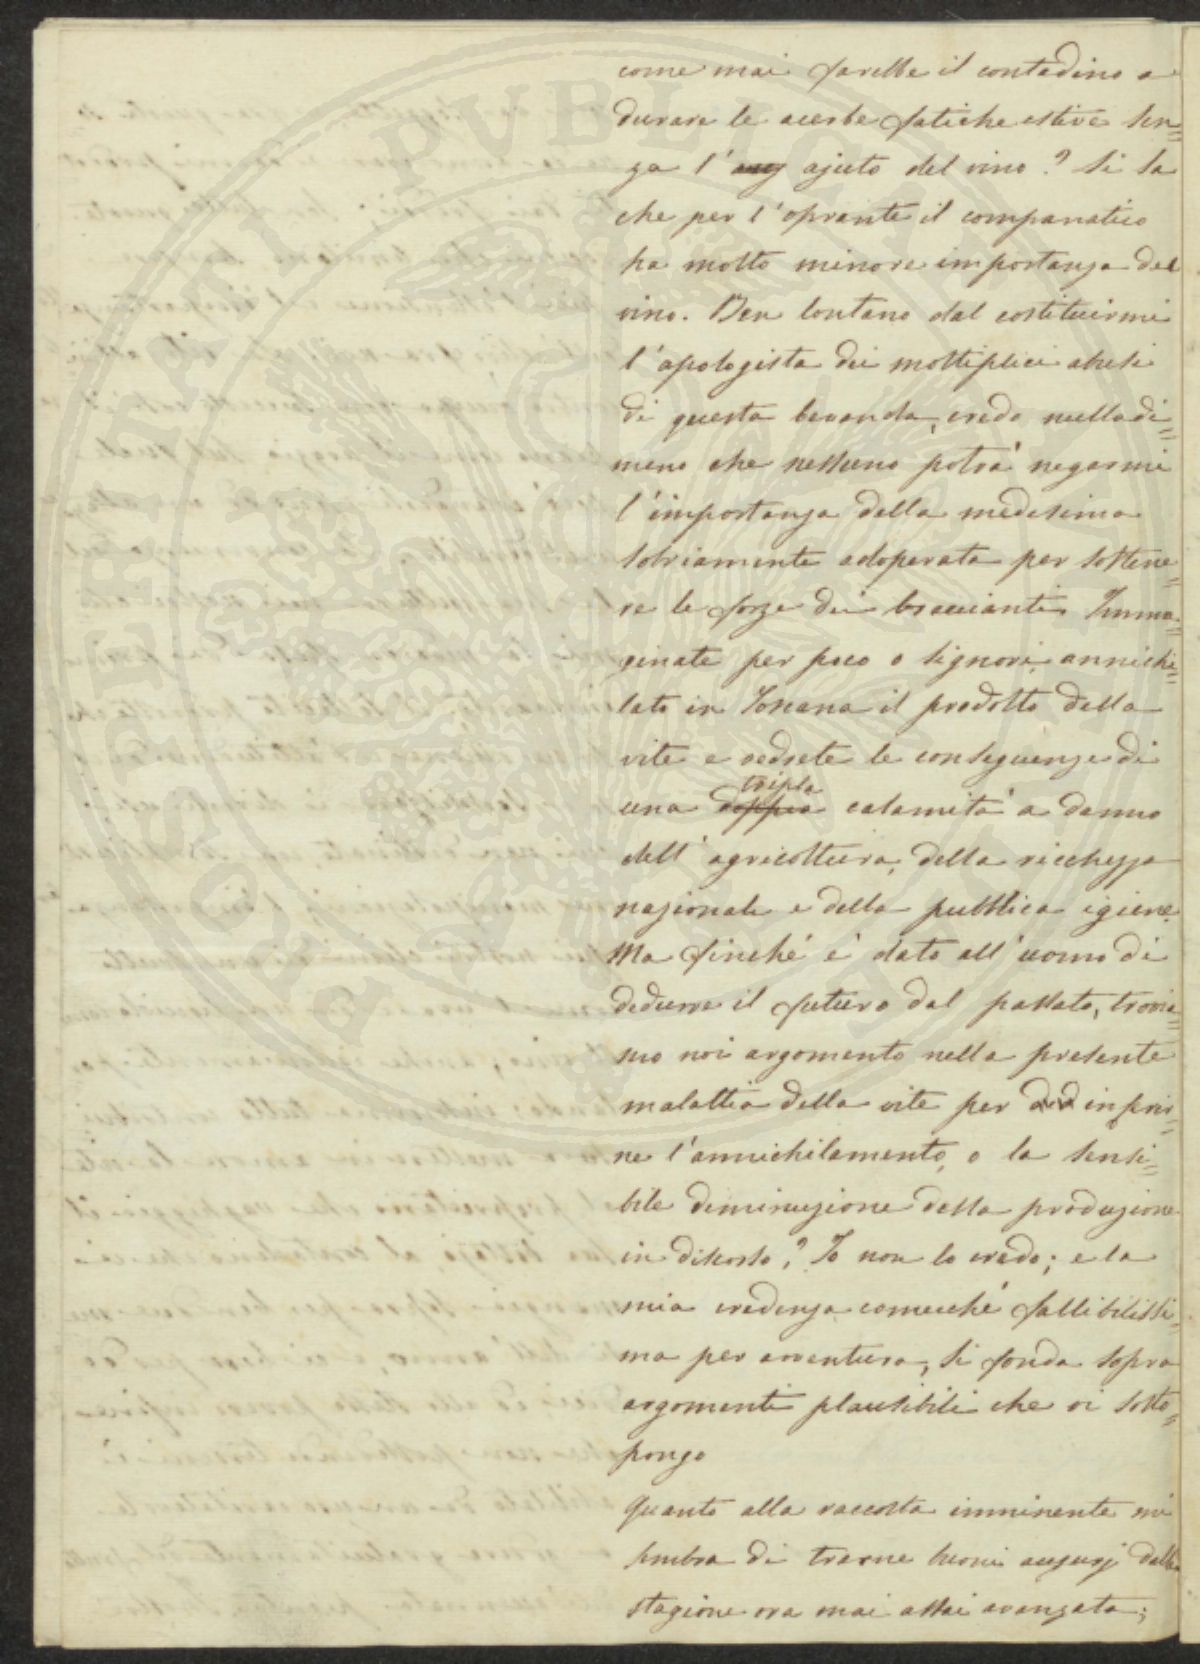 come mai farebbe il contadino a
durare le acerbe fatiche estive sen=
za l' ajuto del vino? Si sa
che per l'oprante il companatico
ha molto minore importanza del
vino. Ben lontano dal costituirmi
l'apologista dei moltiplici abusi
di questa bevanda, credo nulladi=
meno che nessuno potrà negarmi
l'importanza della medesima
sobriamente adoperata per sostene=
re le forze dei braccianti. Imma=
ginate per poco o signori, annichi=
lato in Toscana il prodotto della
vite e vedrete le conseguenze di
una doppia tripla calamità a danno
dell'agricoltura, della ricchezza
nazionale e della pubblica igiene.
Ma finchè è dato all'uomo di
dedurre il futuro dal passato, trovia=
mo noi argomento nella presente
malattia della vite per inferir=
ne l'annichilamento, o la sensi=
bile diminuzione della produzione
in discorso? Io non lo credo; e la
mia credenza comecchè fallibilissi=
ma per avventura, si fonda sopra
argomenti plausibili che vi sotto=
pongo
Quanto alla raccolta imminente mi
sembra di trarne buoni augurj dalla
stagione ora mai assai avanzata;